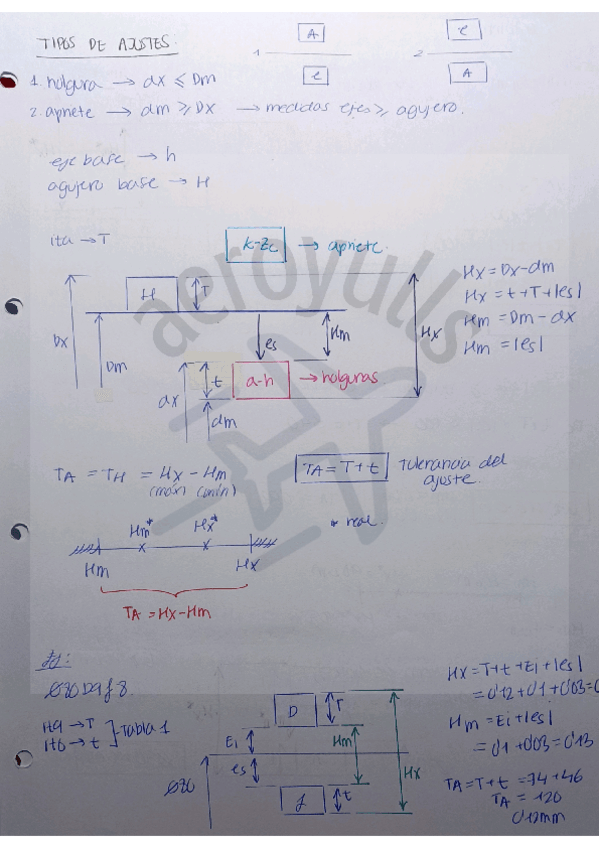 TIPOS DE AJUSTES.
1 A e
2 e A
1. holgura → dx ≤ Dm
2. apriete → dm ≥ Dx → medidas ejes ≥ agujero.
eje base → h
agujero base → H
ita → T
k-zc → apriete.
H T
Dx Dm es Hm Hx
t a-h → holguras
dx dm
Hx = Dx-dm
Hx = t+T+|es|
Hm = Dm-dx
Hm = |es|
TA = TH = Hx - Hm
(máx) (mín)
TA = T+t Tolerancia del ajuste.
Hm* Hx* * real.
Hm Hx
TA = Hx-Hm
Ej:
Ø80 D9 f8.
It9 → T
It8 → t
Tabla 1
D T
Ei Hm
es Hx
Ø80 f t
Hx = T+t+Ei+|es|
= 0'12+0'1+0'03=
Hm = Ei+|es|
= 0'1+0'03=0'13
TA = T+t = 74+46
TA = 120
0'12mm
aeroyulls